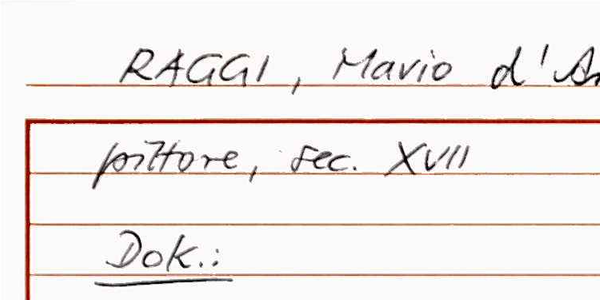 RAGGI, Mario d'An
pittore, sec. XVII
Dok.: